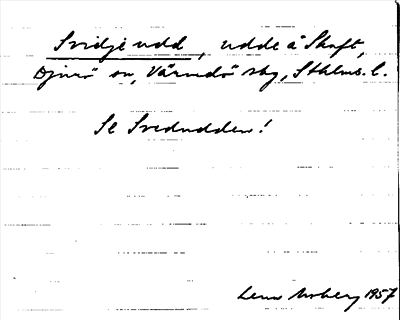 Svidjeudd, udde å Skaft,
Djurö sn, Värmdö skg, Sthlms l.
Se Svedudden!
Lena Moberg 1957